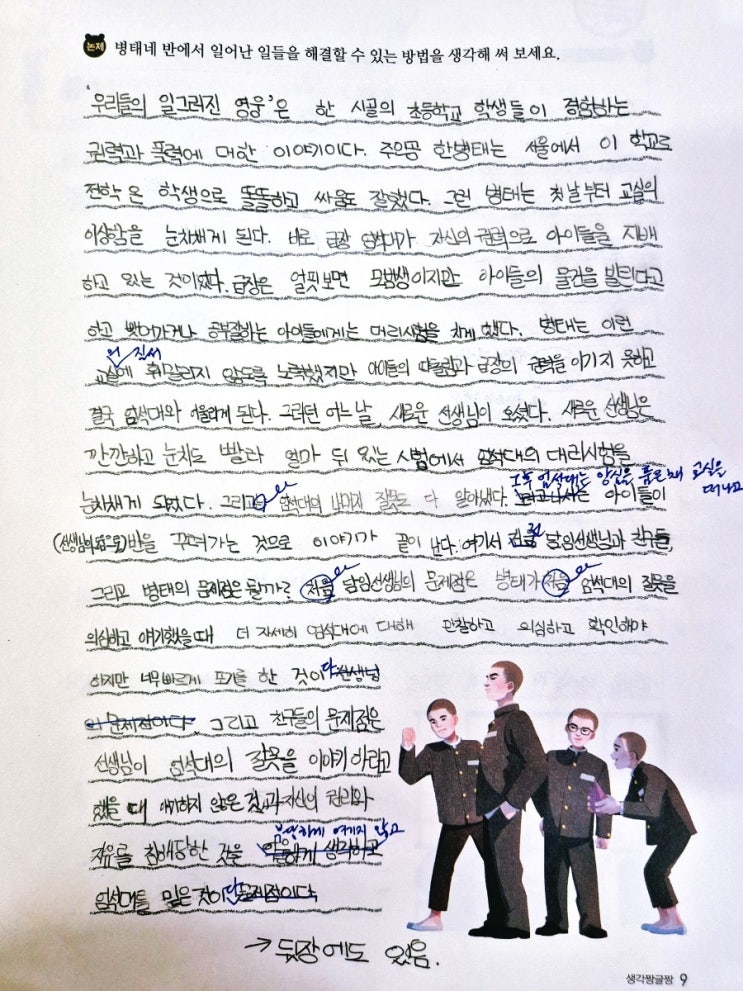 논제 병태네 반에서 일어난 일들을 해결할 수 있는 방법을 생각해 써 보세요.
'우리들의 일그러진 영웅'은 한 시골의 초등학교 학생들이 경험하는
권력과 폭력에 대한 이야기이다. 주인공 한병태는 서울에서 이 학교로
전학 온 학생으로 똘똘하고 싸움도 잘했다. 그런 병태는 첫날부터 교실의
이상함을 눈치채게 된다. 바로 급장 엄석대가 자신의 권력으로 아이들을 지배
하고 있는 것이였다. 급장은 얼핏보면 모범생이지만 아이들의 물건을 빌린다고
하고 뺏어가거나 공부잘하는 아이들에게는 대리시험을 치게 했다. 병태는 이런
의 질서
교실에 휘말리지 않도록 노력했지만 아이들의 따돌림과 급장의 권력을 이기지 못하고
결국 엄석대와 어울리게 된다. 그러던 어느 날, 새로운 선생님이 오셨다. 새로운 선생님은
깐깐하고 눈치도 빨라 얼마 뒤 있는 시험에서 엄석대의 대리시험을
그후 엄석대는 앙심을 품은 채 교실을
떠나고
눈치채게 되었다. 그리고 엄석대의 나머지 잘못도 다 알아냈다. 아이들이
(선생님의 도움으로) 반을 꾸려가는 것으로 이야기가 끝이 난다. 여기서 전 담임선생님과 친구들,
그리고 병태의 문제점은 뭘까? 처음 담임선생님의 문제점은 병태가 처음 엄석대의 잘못을
의심하고 얘기했을때 더 자세히 엄석대에 대해 관찰하고 의심하고 확인해야
하지만 너무빠르게 포기를 한 것이다 선생님
의 문제점이다. 그리고 친구들의 문제점은
선생님이 엄석대의 잘못을 이야기 하라고
했을 때 얘기하지 않은 것과 자신의 권리와
부당하게 여기지 않고
자유를 침해당한 것을 생각하고
엄석대를 믿은 것이다 문제점이다
→ 뒷장에도 있음.
생각짱글짱 9